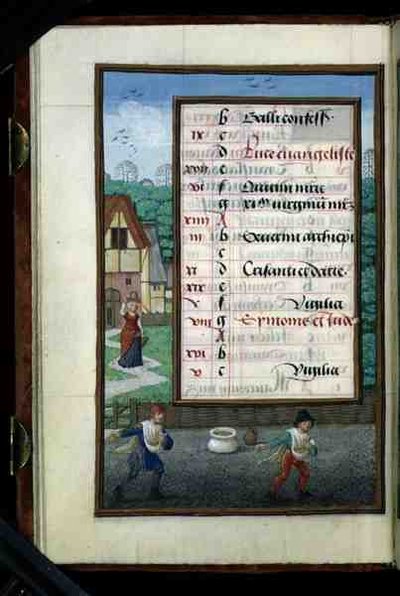 b Galli confess.
ix c
d Luce euangeliste
xvii e
vi f
g xi m virginum mrz
xiiii A
iii b Seuerini archiepi
c
xi d Crisanti et darie.
xix e
f Vigilia
viii g Symonis et iude
A
xvi b
v c Vigilia